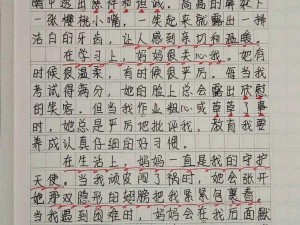 睛中透出了慈祥和坦诚。高高的鼻梁下
一张樱桃小嘴，一笑起来就露出一排
洁白的牙齿，让人感到亲切和温暖。
在学习上，妈妈很关心我。她有
时候很温柔，有时候很严厉。每当我
考试得满分，她的脸上总会露出欣慰
的笑容。但当我作业粗心或草草了事
时，她总是严厉地批评我，教育我要
养成认真仔细的好习惯。
在生活上，妈妈一直是我的守护
天使。当我顽皮闯了祸时，她会张开
她那双隐形的翅膀把我紧紧包裹着。
当我遇到困难时，妈妈会在我后面默